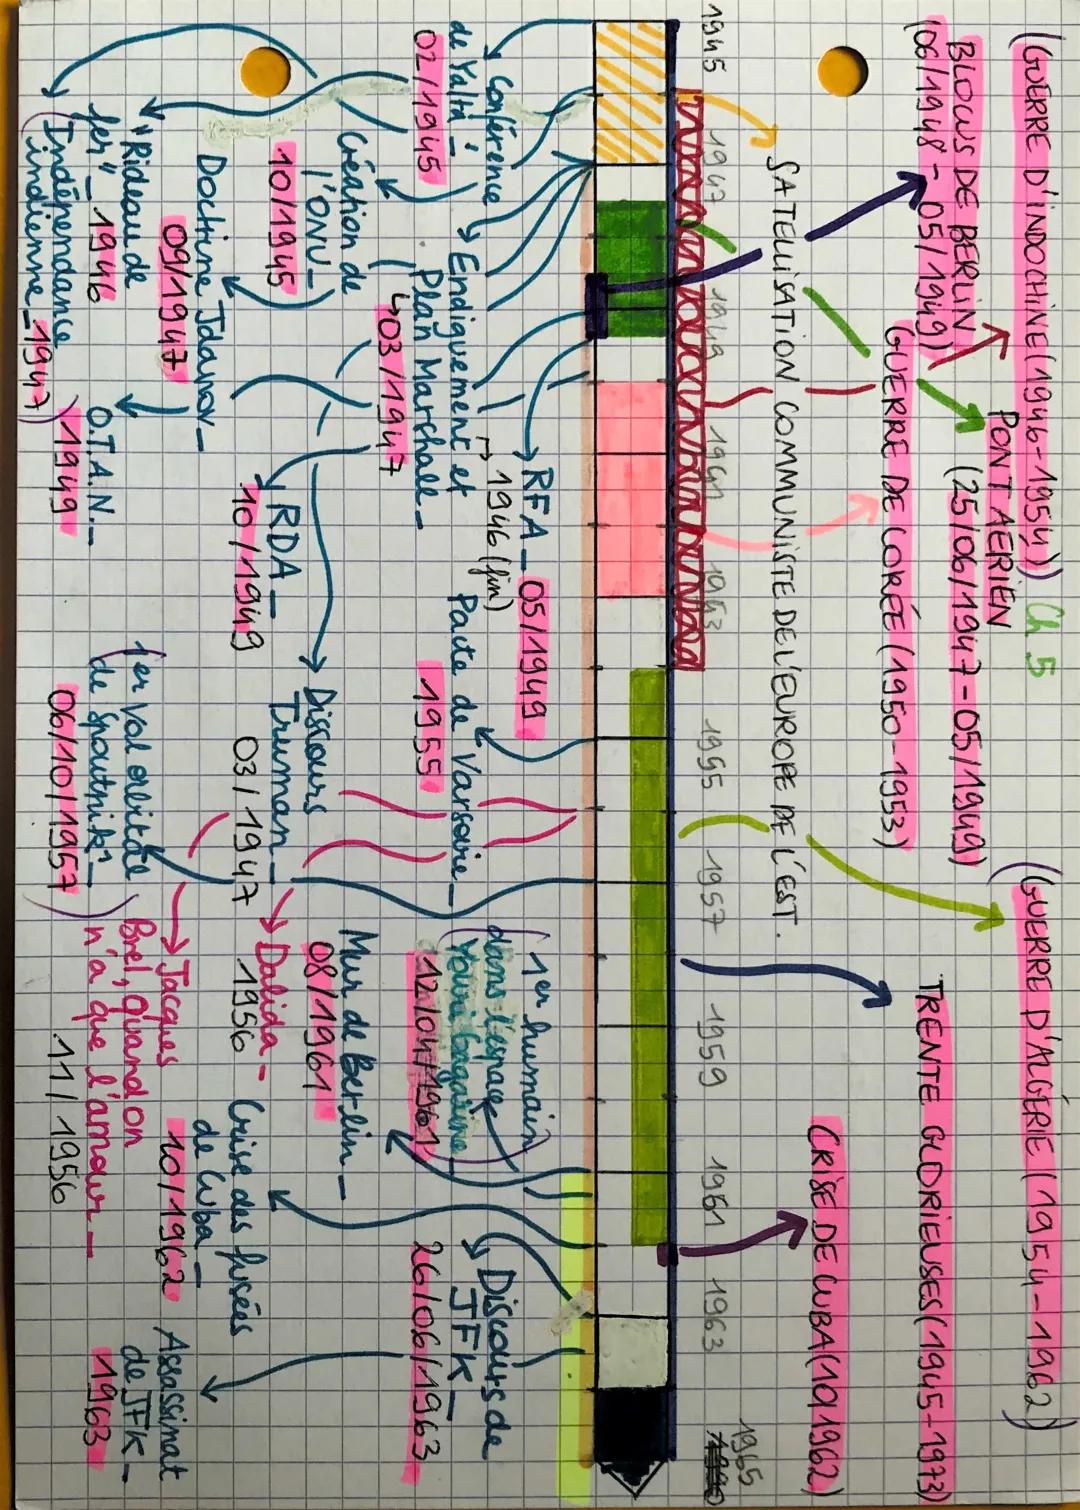 (GUERRE D'INDOCHINE (1946-1954))
Ch 5
(GUERRE D'ALGÉRIE (1954-1962))
BLOCUS DE BERLIN
(06/1948-05/1949)
PONT AÉRIEN
(25/06/1947-05/1949)
TRENTE GLORIEUSES (1945-1973)
GUERRE DE CORÉE (1950-1953)
CRISE DE CUBA (10/1962)
SATELLISATION COMMUNISTE DE L'EUROPE DE L'EST.
1945
1947
1949
1951
1953
1955
1957
1959
1961
1963
1965
Conférence
de Yalta _
02/1945
RFA _ 05/1949
→ 1946 (fin)
Endiguement et
Plan Marshall _
↳ 03/1947
Pacte de Varsovie _
1955
(1er humain
dans l'espace
Youri Gagarine _
12/04/1961)
Discours de
JFK _
26/06/1963
Création de
l'ONU _
10/1945
Mur de Berlin _
08/1961
Discours
Truman _
03/1947
RDA _
10/1949
Dalida _
1956
Crise des fusées
de Cuba _
10/1962
Doctrine Jdanov _
09/1947
"Rideau de
fer" _ 1946
O.T.A.N. _
1949
(1er vol orbital
de spoutnik 1 _
06/10/1957)
Jacques
Brel, Quand on
n'a que l'amour _
11/1956
Assassinat
de JFK _
1963
(Indépendance
indienne _ 1947)